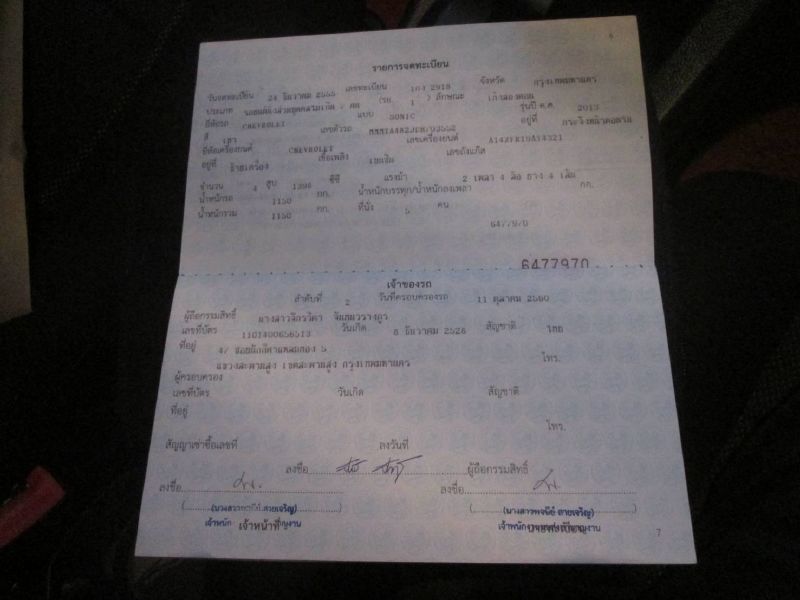 6
รายการจดทะเบียน
วันจดทะเบียน 24 ธันวาคม 2555 เลขทะเบียน 1กง 2918 จังหวัด กรุงเทพมหานคร
ประเภท รถยนต์นั่งส่วนบุคคลไม่เกิน 7 คน (รย. 1 ) ลักษณะ เก๋งสองตอน
ยี่ห้อรถ CHEVROLET แบบ SONIC รุ่นปี ค.ศ. 2013
สี เทา เลขตัวรถ อยู่ที่
ยี่ห้อเครื่องยนต์ CHEVROLET เลขเครื่องยนต์
อยู่ที่ เชื้อเพลิง เบนซิน เลขถังแก๊ส
จำนวน 4 สูบ 1398 ซีซี แรงม้า 2 เพลา 4 ล้อ ยาง 4 เส้น
น้ำหนักรถ 1150 กก. น้ำหนักบรรทุก/น้ำหนักลงเพลา กก.
น้ำหนักรวม 1150 กก. ที่นั่ง 5 คน
6477970
6477970
เจ้าของรถ
ลำดับที่ 2 วันที่ครอบครองรถ 11 ตุลาคม 2560
ผู้ถือกรรมสิทธิ์ นางสาวจิรวิดา
เลขที่บัตร 1101400656513 วันเกิด 8 ธันวาคม 2528 สัญชาติ ไทย
ที่อยู่ 47
แขวงสะพานสูง เขตสะพานสูง กรุงเทพมหานคร โทร.
ผู้ครอบครอง
เลขที่บัตร วันเกิด สัญชาติ
ที่อยู่
โทร.
สัญญาเช่าซื้อเลขที่ ลงวันที่
ลงชื่อ ผู้ถือกรรมสิทธิ์
ลงชื่อ ลงชื่อ
(นางสาวพจนีย์ สายเจริญ) (นางสาวพจนีย์ สายเจริญ)
เจ้าหน้าที่
7